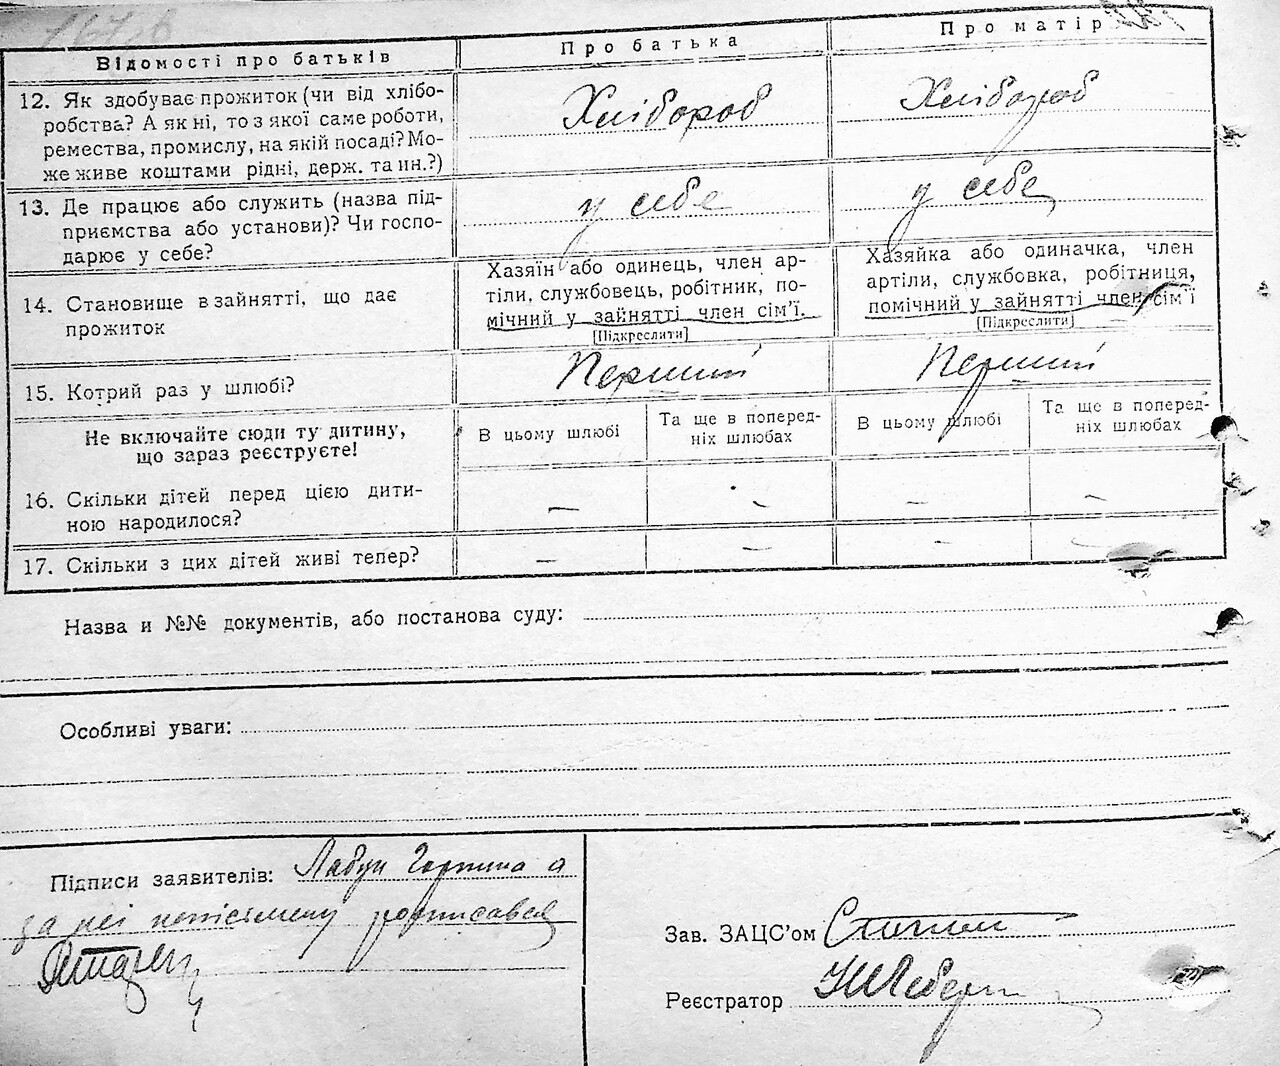 Відомості про батьків
Про батька
Про матір
12. Як здобуває прожиток (чи від хлібо-
робства? А як ні, то з якої саме роботи,
ремества, промислу, на якій посаді? Мо-
же живе коштами рідні, держ. та ин.?)
Хлібороб
Хлібороб
13. Де працює або служить (назва під-
приємства або установи)? Чи госпо-
дарює у себе?
у себе
у себе
14. Становище в зайнятті, що дає
прожиток
Хазяїн або одинець, член ар-
тіли, службовець, робітник, по-
мічний у зайнятті член сім'ї.
[Підкреслити]
Хазяйка або одиначка, член
артіли, службовка, робітниця,
помічний у зайнятті член сім'ї
[Підкреслити]
15. Котрий раз у шлюбі?
Перший
Перший
Не включайте сюди ту дитину,
що зараз реєструєте!
В цьому шлюбі
Та ще в поперед-
ніх шлюбах
В цьому шлюбі
Та ще в поперед-
ніх шлюбах
16. Скільки дітей перед цією дити-
ною народилося?
– – – –
17. Скільки з цих дітей живі тепер?
– – – –
Назва и №№ документів, або постанова суду:
Особливі уваги:
Підписи заявителів: Лабун Горпина а
за неї неписьмену росписався
Зав. ЗАЦС'ом
Реєстратор